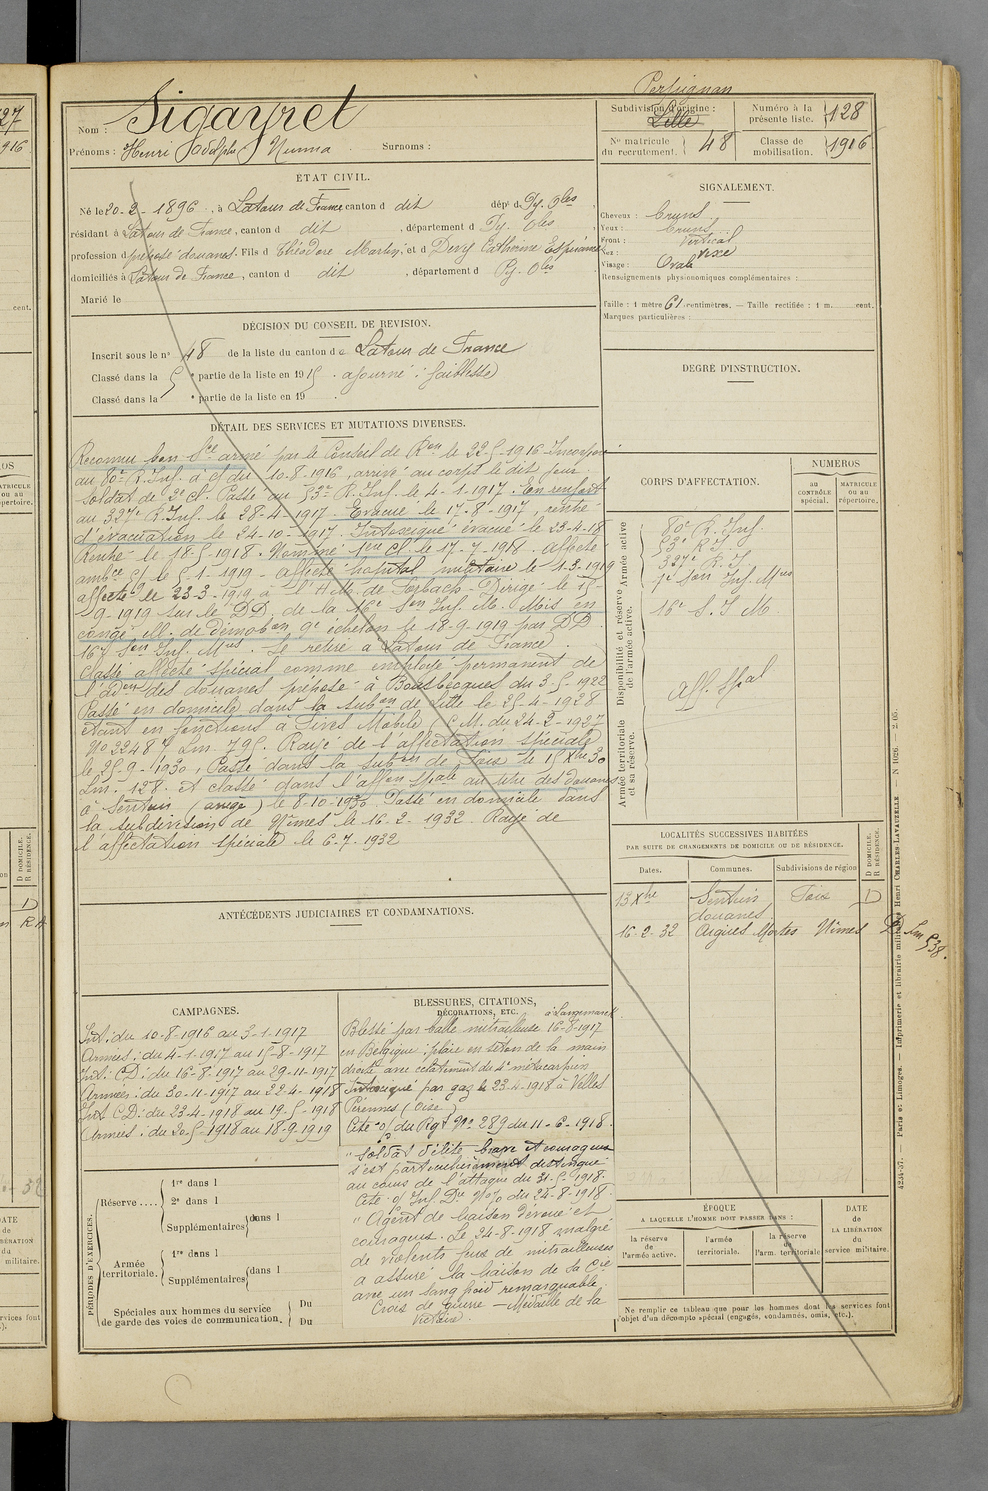 Perpignan
Nom : Sigayret
Prénoms : Henri Adolphe Numa Surnoms :
Subdivision d'origine : Lille
Numéro à la présente liste. 128
N° matricule du recrutement. 48
Classe de mobilisation. 1916
ÉTAT CIVIL.
Né le 20-2-1896, à Latour de France canton d dit dépt d Py. Oles
résidant à Latour de France, canton d dit, département d Py. Oles
profession d préposé douanes. Fils d Théodore Martin, et d Deny Catherine Espérance
domiciliés à Latour de France, canton d dit, département d Py. Oles
Marié le
SIGNALEMENT.
Cheveux : bruns
Yeux : bruns
Front : vertical
Nez : vexe
Visage : Ovale
Renseignements physionomiques complémentaires :
Taille : 1 mètre 61 centimètres. — Taille rectifiée : 1 m. cent.
Marques particulières :
DÉCISION DU CONSEIL DE REVISION.
Inscrit sous le n° 48 de la liste du canton de Latour de France
Classé dans la 5e partie de la liste en 1915. ajourné : faiblesse
Classé dans la e partie de la liste en 19 .
DEGRÉ D'INSTRUCTION.
DÉTAIL DES SERVICES ET MUTATIONS DIVERSES.
Reconnu bon Sce armé par le Conseil de Ron le 22-5-1916. Incorporé
au 80e R. Inf. à c/ du 10-8-1916, arrivé au corps le dit jour.
Soldat de 2e cl. Passé au 53e R. Inf. le 4-1-1917. En renfort
au 327e R. Inf. le 28-4-1917. Evacué le 17-8-1917, rentré
d'évacuation le 24-10-1917. Intoxiqué évacué le 23-4-18
Rentré le 18-5-1918. Nommé 1ère Cl. le 17-7-1918. Affecté
ambce 5/1 le 5-1-1919 - Affecté hôpital militaire le 1-3-1919
affecté le 23-3-1919 à l'H. M. de Forbach. Dirigé le 15-
9-1919 sur le DD. de la 16e Son Inf. M. Mis en
congé ill. de démobon 9e échelon le 18-9-1919 par DD
16e Son Inf. Mres. Se retire à Latour de France.
Classé affecté spécial comme employé permanent de
l'adon des douanes préposé à Bousbecques du 3-5-1922
Passé en domicile dans la subon de Lille le 25-4-1928
étant en fonctions à Fives Mobile (C. M. du 24-2-1927
No 2248 7/ Lm. 795. Rayé de l'affectation spéciale
le 25-9-1930, Passé dans la subon de Foix le 15 Xbre 30
Lm. 128. et classé dans l'affon spale au titre des douanes
à Sentein (ariège) le 8-10-1930 Passé en domicile dans
la subdivision de Nîmes le 16-2-1932 Rayé de
l'affectation spéciale le 6-7-1932
CORPS D'AFFECTATION.
NUMÉROS
AU CONTRÔLE spécial.
MATRICULE ou au répertoire.
Armée active
80e R. Inf.
53e R I
327e R. I
1e Son Inf. Mres
Disponibilité et réserve de l'armée active.
16e S. I M.
Aff. Spal
Armée territoriale et sa réserve.
LOCALITÉS SUCCESSIVES HABITÉES
PAR SUITE DE CHANGEMENTS DE DOMICILE OU DE RÉSIDENCE.
Dates. Communes. Subdivisions de région
D DOMICILE. R RÉSIDENCE.
13 Xbre Sentein douanes Foix D
16-2-32 Aigues Mortes Nîmes D Lm 538.
ANTÉCÉDENTS JUDICIAIRES ET CONDAMNATIONS.
CAMPAGNES.
Int. : du 10-8-1916 au 3-1-1917
Armées : du 4-1-1917 au 15-8-1917
Int. CD : du 16-8-1917 au 29-11-1917
Armées : du 30-11-1917 au 22-4-1918
Int CD : du 23-4-1918 au 19-5-1918
Armées : du 20-5-1918 au 18-9-1919
BLESSURES, CITATIONS,
DÉCORATIONS, ETC.
à Langemarck
Blessé par balle mitrailleuse 16-8-1917
en Belgique : plaie en séton de la main
droite avec éclatement du 4e métacarpien
Intoxiqué par gaz le 23-4-1918 à Velles
Perennes (Oise)
Cité o/ du Rgt No 289 du 11-6-1918.
" Soldat d'élite, brave et courageux
s'est particulièrement distingué
au cours de l'attaque du 31-5-1918.
Cité o/ Inf Dre No 70 du 22-8-1918
" Agent de liaison dévoué et
courageux. Le 24-8-1918 malgré
de violents feux de mitrailleuses
a assuré la liaison de la Cie
avec un sang froid remarquable.
Croix de guerre — Médaille de la
Victoire.
PÉRIODES D'EXERCICES.
Réserve....
1re dans l
2e dans l
Supplémentaires dans l
Armée territoriale.
1re dans l
Supplémentaires dans l
Spéciales aux hommes du service
de garde des voies de communication.
Du
Du
ÉPOQUE
A LAQUELLE L'HOMME DOIT PASSER DANS :
la réserve de l'armée active.
l'armée territoriale.
la réserve de l'arm. territoriale
DATE de LA LIBÉRATION du service militaire.
Ne remplir ce tableau que pour les hommes dont les services font
l'objet d'un décompte spécial (engagés, condamnés, omis, etc.).
4234-37. — Paris et Limoges. — Imprimerie et librairie militaires Henri CHARLES-LAVAUZELLE